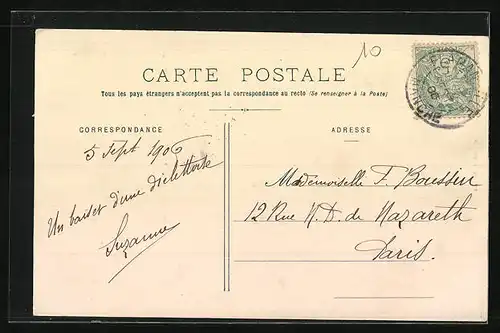 10
CARTE POSTALE
Tous les pays étrangers n'acceptent pas la correspondance au recto (Se renseigner à la Poste)
CORRESPONDANCE
ADRESSE
5 Sept 1906
Un baiser d'une
Suzanne
Mademoiselle F.
12 Rue N.D. de Nazareth
Paris.
MANCHE